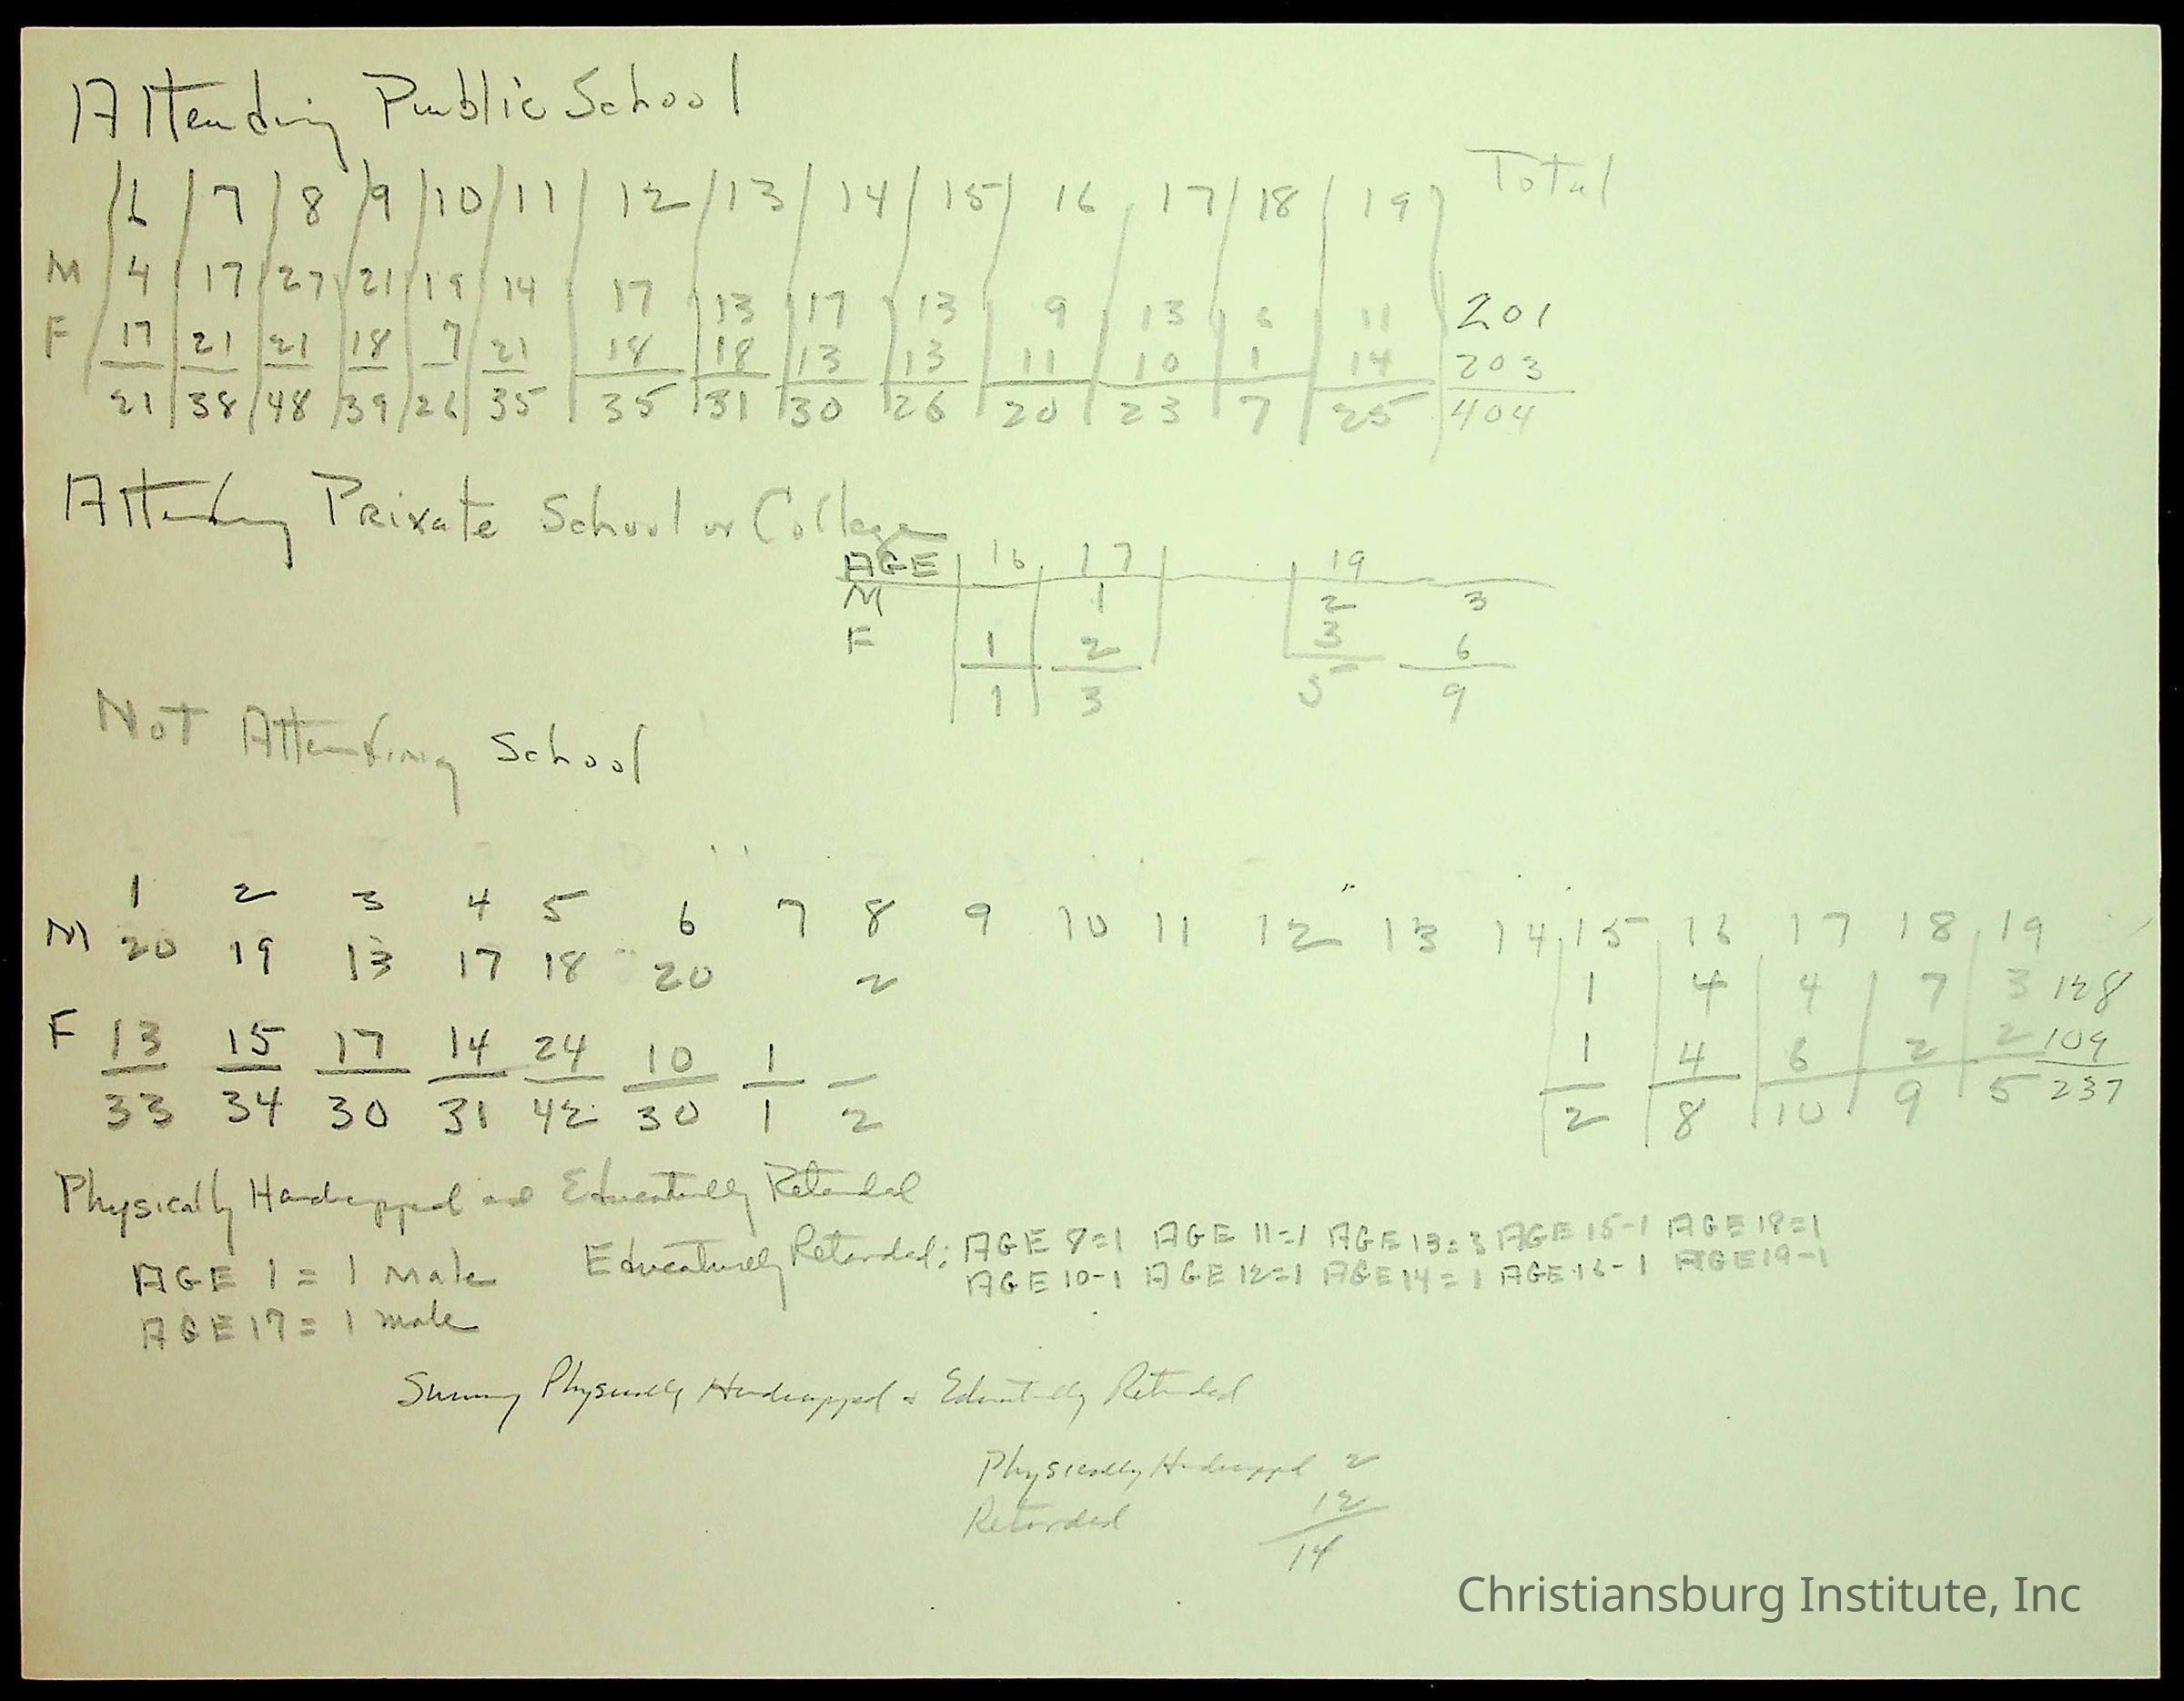 Attending Public School
6 7 8 9 10 11 12 13 14 15 16 17 18 19 Total
M 4 17 27 21 19 14 17 13 17 13 9 13 6 11 201
F 17 21 21 18 7 21 18 18 13 13 11 10 1 14 203
21 38 48 39 26 35 35 31 30 26 20 23 7 25 404
Attending Private School or College
AGE 16 17 19
M 1 2 3
F 1 2 3 6
1 3 5 9
Not Attending School
1 2 3 4 5 6 7 8 9 10 11 12 13 14 15 16 17 18 19
M 20 19 13 17 18 20 2 1 4 4 7 3 128
F 13 15 17 14 24 10 1 1 4 6 2 2 109
33 34 30 31 42 30 1 2 2 8 10 9 5 237
Physically Handicapped and Educatually Retarded
AGE 1 = 1 Male
AGE 17 = 1 male
Educatually Retarded: AGE 8=1 AGE 11=1 AGE 13=3 AGE 15-1 AGE 18=1
AGE 10-1 AGE 12=1 AGE 14=1 AGE 16-1 AGE 19-1
Summy Physically Handicapped & Educatually Retarded
Physically Handicappd 2
Retarded 12
14
Christiansburg Institute, Inc